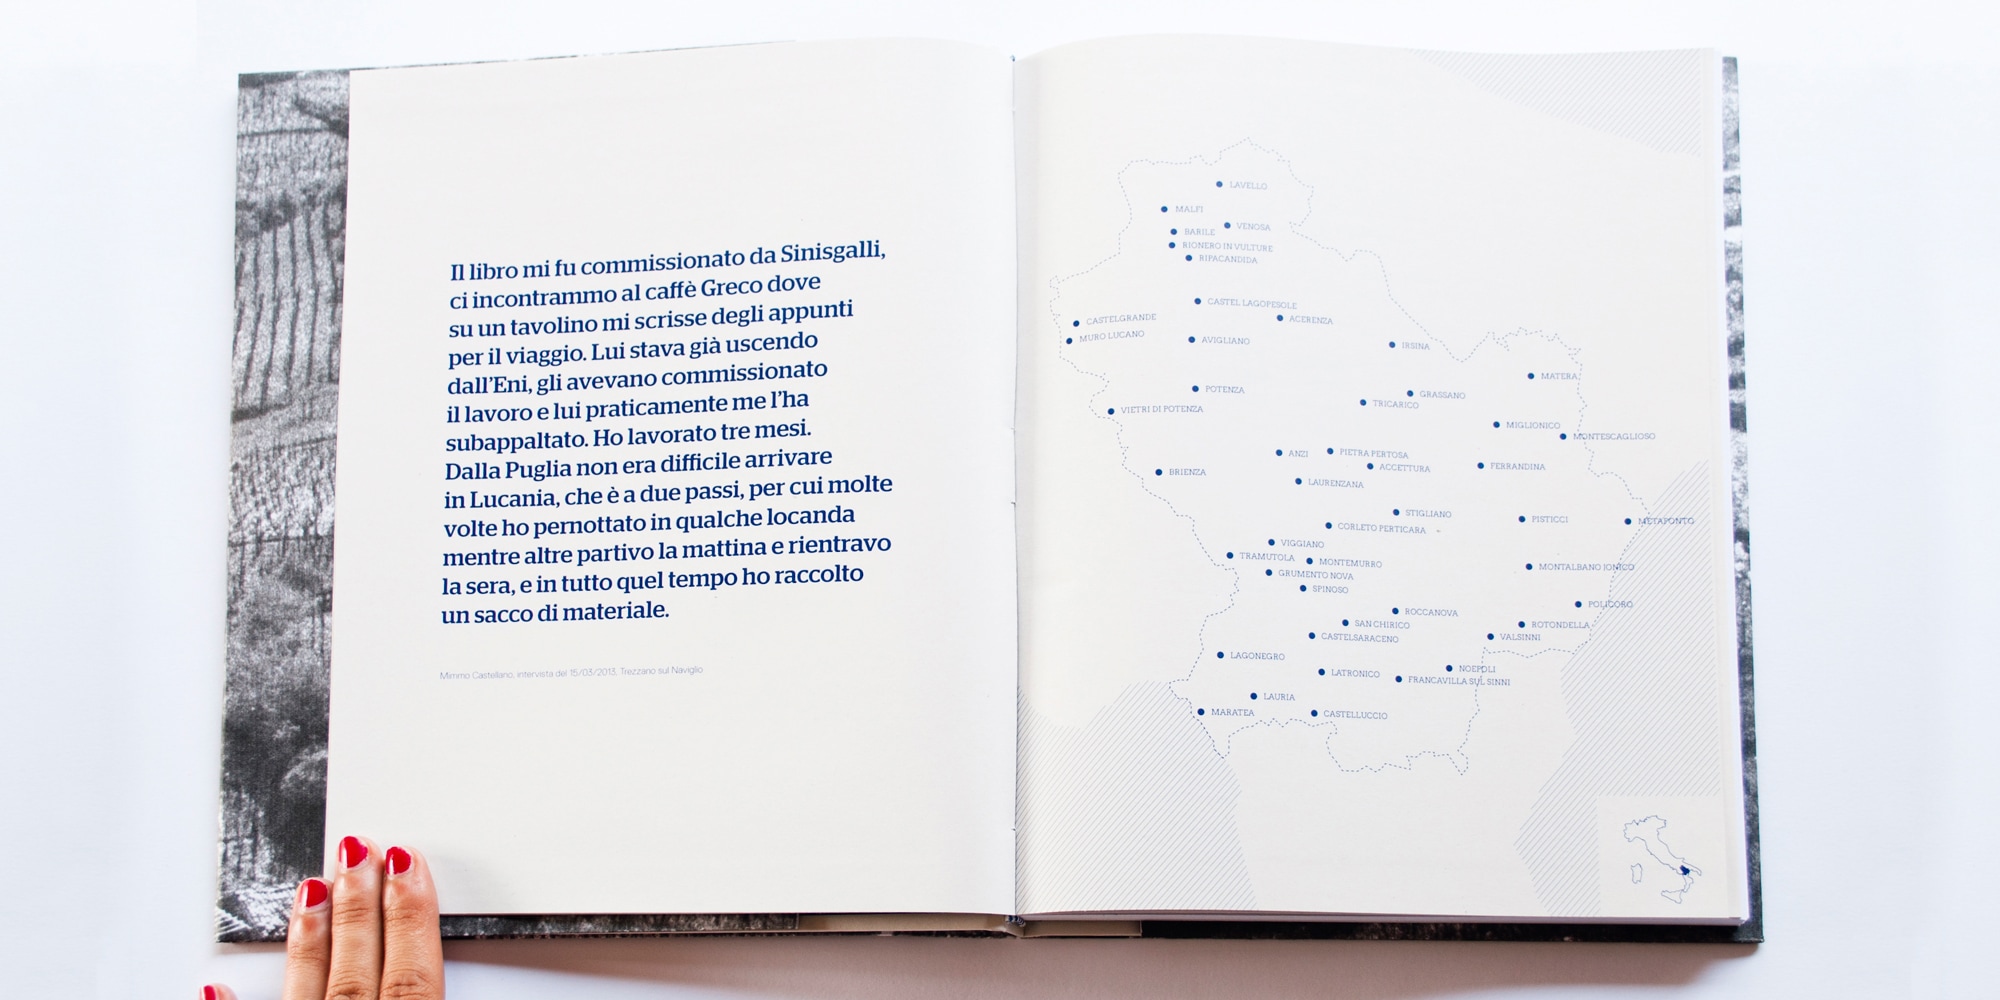 Il libro mi fu commissionato da Sinisgalli,
ci incontrammo al caffè Greco dove
su un tavolino mi scrisse degli appunti
per il viaggio. Lui stava già uscendo
dall'Eni, gli avevano commissionato
il lavoro e lui praticamente me l'ha
subappaltato. Ho lavorato tre mesi.
Dalla Puglia non era difficile arrivare
in Lucania, che è a due passi, per cui molte
volte ho pernottato in qualche locanda
mentre altre partivo la mattina e rientravo
la sera, e in tutto quel tempo ho raccolto
un sacco di materiale.
Mimmo Castellano, intervista del 15/03/2013, Trezzano sul Naviglio
LAVELLO
MALFI
VENOSA
BARILE
RIONERO IN VULTURE
RIPACANDIDA
CASTEL LAGOPESOLE
CASTELGRANDE
ACERENZA
MURO LUCANO
AVIGLIANO
IRSINA
MATERA
POTENZA
GRASSANO
TRICARICO
VIETRI DI POTENZA
MIGLIONICO
MONTESCAGLIOSO
ANZI
PIETRA PERTOSA
ACCETTURA
FERRANDINA
BRIENZA
LAURENZANA
STIGLIANO
PISTICCI
METAPONTO
CORLETO PERTICARA
VIGGIANO
TRAMUTOLA
MONTEMURRO
MONTALBANO IONICO
GRUMENTO NOVA
SPINOSO
POLICORO
ROCCANOVA
SAN CHIRICO
ROTONDELLA
CASTELSARACENO
VALSINNI
LAGONEGRO
NOEPOLI
LATRONICO
FRANCAVILLA SUL SINNI
LAURIA
MARATEA
CASTELLUCCIO